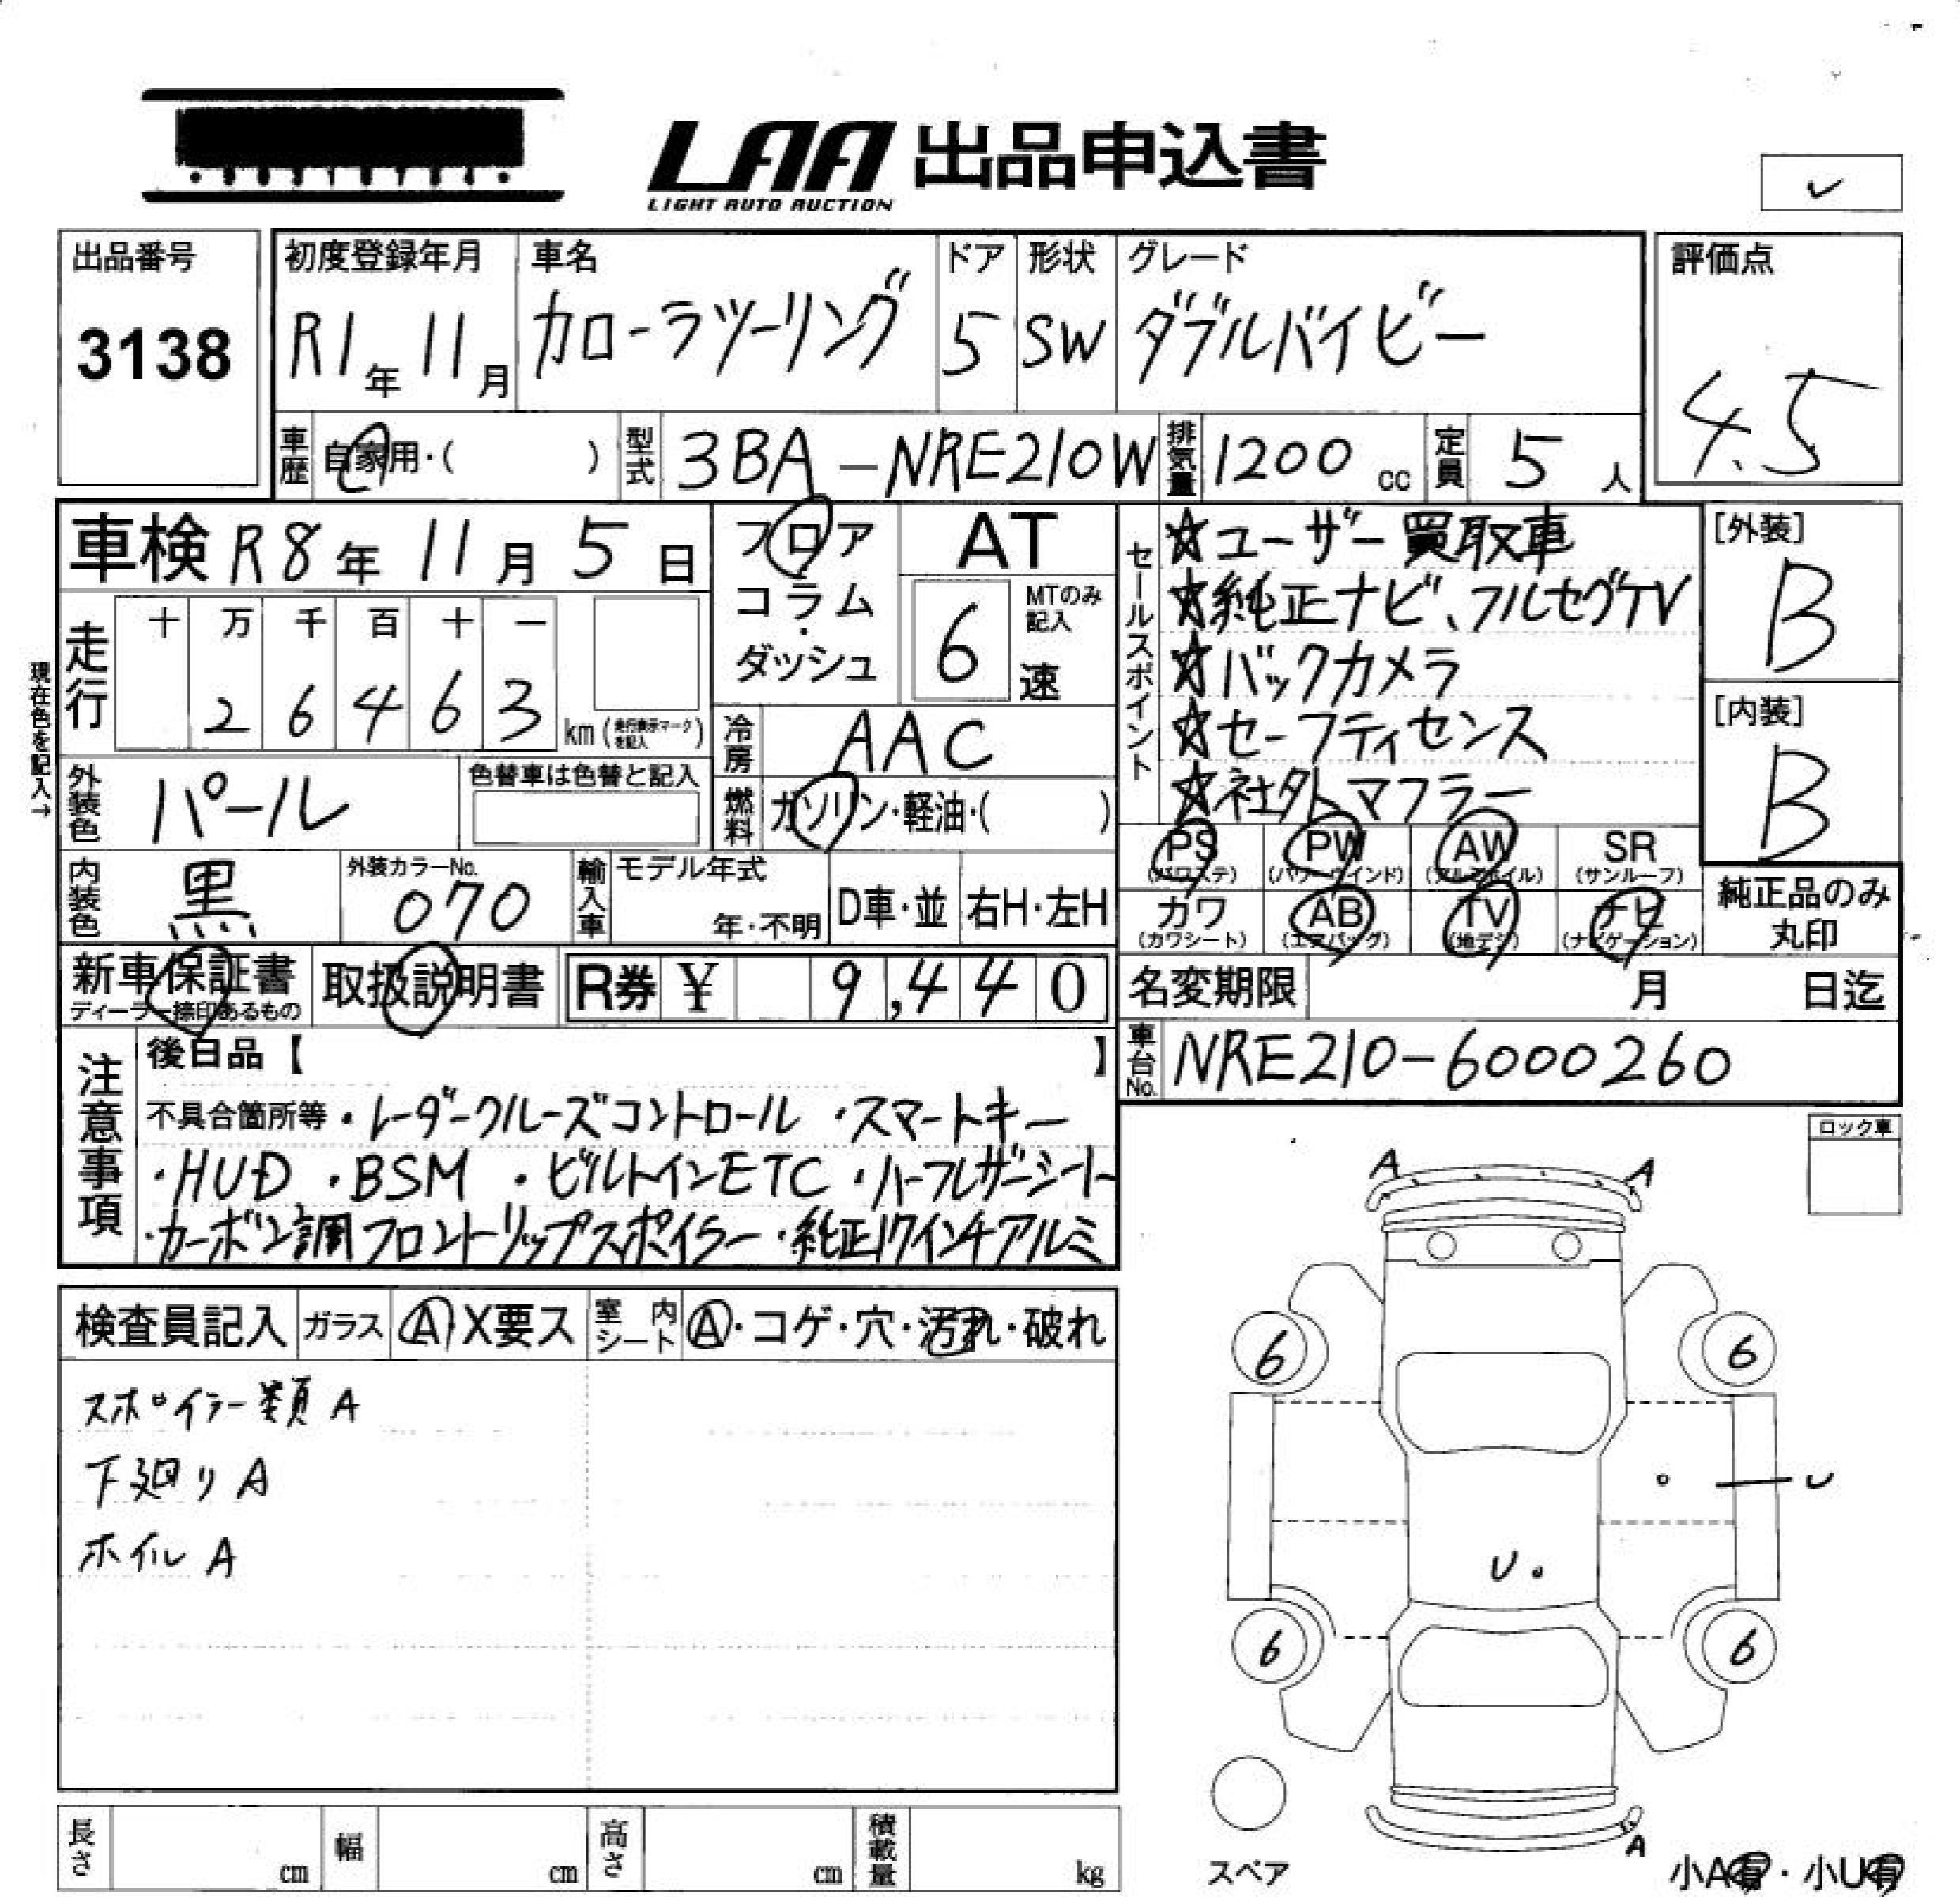 LAA 出品申込書
LIGHT AUTO AUCTION
レ
出品番号
3138
初度登録年月
R1年 11月
車名
カローラツーリング
ドア
5
形状
SW
グレード
ダブルバイビー
評価点
4.5
車歴 自家用・( )
型式 3BA-NRE210W
排気量 1200 cc
定員 5 人
車検 R8年 11月 5日
フロア
コラム
・
ダッシュ
AT
6 MTのみ記入 速
セールスポイント
☆ユーザー買取車
☆純正ナビ、フルセグTV
☆バックカメラ
☆セーフティセンス
☆社外マフラー
[外装]
B
[内装]
B
現在色を記入→
走行 十 万 千 百 十 一
2 6 4 6 3 km (走行表示マークを記入)
冷房 AAC
外装色 パール
色替車は色替と記入
燃料 ガソリン・軽油・( )
PS (パワステ) PW (パワーウインド) AW (アルミホイル) SR (サンルーフ)
カワ (カワシート) AB (エアバッグ) TV (地デジ) ナビ (ナビゲーション)
純正品のみ
丸印
内装色 黒
外装カラーNo.
070
輸入車 モデル年式
年・不明 D車・並 右H・左H
新車保証書
ディーラー捺印あるもの
取扱説明書
R券 ¥ 9,440
名変期限 月 日迄
車台No. NRE210-6000260
注意事項
後日品【 】
不具合箇所等 ・レーダークルーズコントロール ・スマートキー
・HUD ・BSM ・ビルトインETC ・ハーフレザーシート
・カーボン調フロントリップスポイラー ・純正17インチアルミ
ロック車
検査員記入 ガラス A X要ス 室内シート A・コゲ・穴・汚れ・破れ
スポイラー類 A
下廻り A
ホイル A
A A
6 6
U
U
6 6
A
スペア
小A有・小U有
長さ cm 幅 cm 高さ cm 積載量 kg